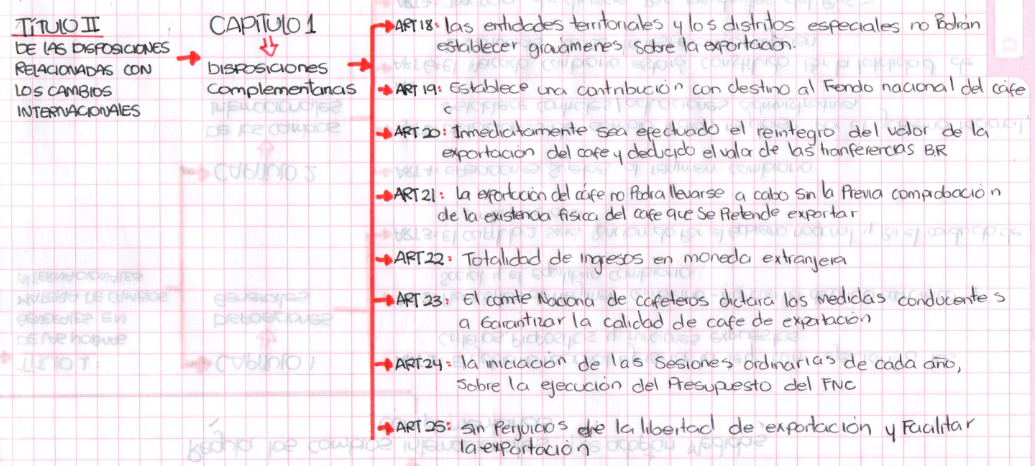 TÍTULO II
DE LAS DISPOSICIONES
RELACIONADAS CON
LOS CAMBIOS
INTERNACIONALES
CAPITULO 1
DISPOSICIONES
complementarias
ART 18: las entidades territoriales y los distritos especiales no Podrán
establecer gravámenes sobre la exportación.
ART 19: Establece una contribución con destino al Fondo nacional del cafe
c
ART 20: Inmediatamente sea efectuado el reintegro del valor de la
exportación del cafe y deducido el valor de las tranferencias BR
ART 21: la exportación del cafe no Podra llevarse a cabo sin la Previa comprobación
de la existencia fisica del cafe que se Pretende exportar
ART 22: Totalidad de ingresos en moneda extranjera
ART 23: El comite Naciona de cafeteros dictara las medidas conducentes
a Garantizar la calidad de cafe de expotación
ART 24: la iniciación de las Sesiones ordinarias de cada año,
Sobre la ejecución del Presupuesto del FNC
ART 25: Sin Perjuicios de la libertad de exportación y Facilitar
la exportación